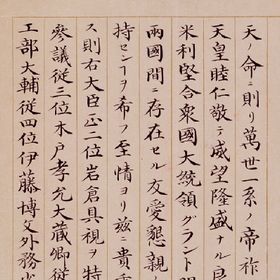 天ノ命ニ則リ萬世一系ノ帝祚
天皇睦仁敬テ威望隆盛ナル良
米利堅合衆國大統領グラント
兩國間ニ存在セル友愛懇親
持センヿヲ希フ至情ヨリ兹ニ貴
ス則右大臣正二位岩倉具視ヲ特
參議従三位木戸孝允大藏卿従
工部大輔従四位伊藤博文外務